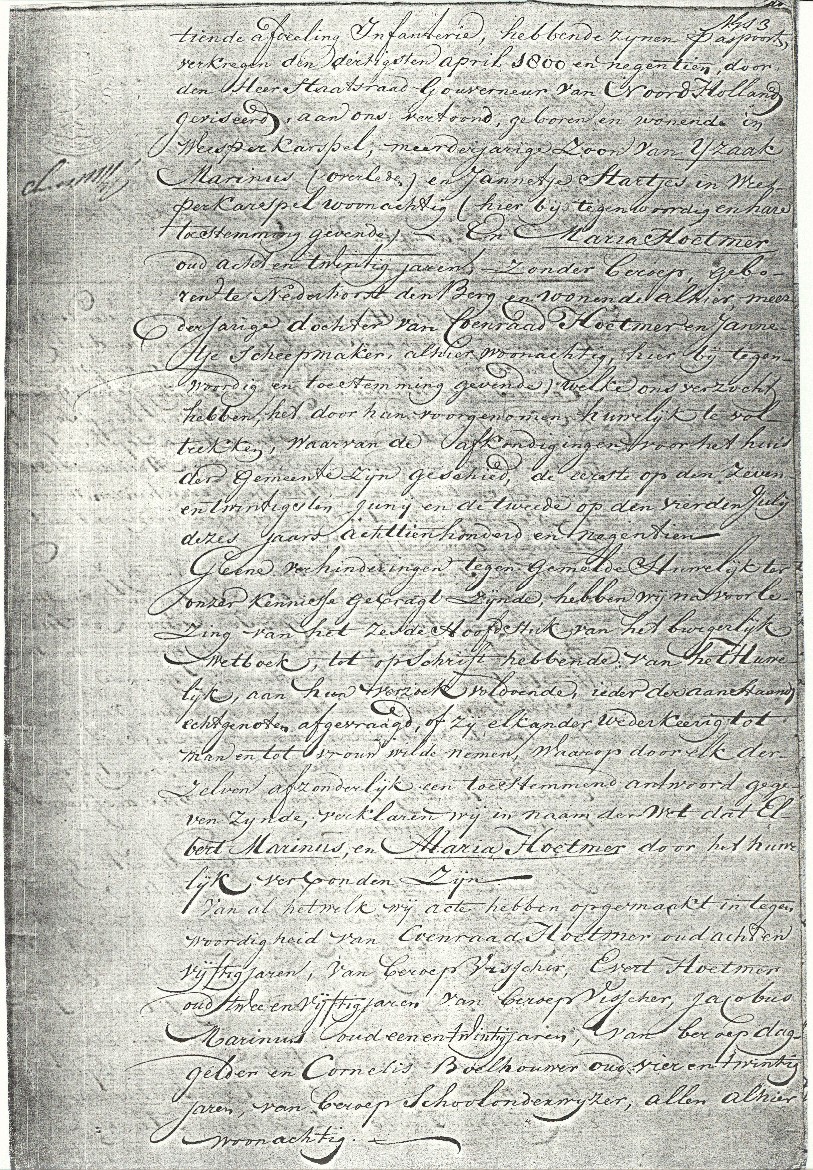 N 3
tiende afdeeling Infanterie, hebbende zynen Paspoort,
verkregen den dertigsten april 1800 en negentien, door
den Heer Staatsraad Gouverneur van Noord Holland
geviseerd, aan ons vertoond, geboren en wonende in
Weesperkarspel, meerderjarige Zoon van Yzaak
Marinus (overlede) en Jannetje Startjes in Wees-
perkarspel woonachtig (hier bij tegenwoordig en hare
toestemming gevende) — En Maria Hoetmer
oud acht en twintig jaren, zonder beroep, gebo-
ren te Nederhorst den Berg en wonende alhier, meer
derjarige dochter van Coenraad Hoetmer en Janne-
tje Scheepmaker, alhier woonachtig, hier bij tegen-
woordig en toestemming gevende) welke ons verzocht
hebben, het door hun voorgenomen huwelijk te vol-
trekken, waarvan de afkondigingen voor het huis
der Gemeente zijn geschied, de eerste op den Zeven
en twintigsten Junij en de tweede op den vierden Julij
dezes jaars achttienhonderd en negentien —
Geene verhinderingen tegen gemelde Huwelijk ter
onzer kennisse gebragt zijnde, hebben wij na voorle-
zing van het zesde Hoofdstuk van het burgerlijk
Wetboek, tot opschrift hebbende van het Huwe-
lijk, aan hun verzoek voldoende, ieder der aanstaande
echtgenoten afgevraagd, of zy elkander wederkeerig tot
man en tot vrouw wilde nemen, Waarop door elk der-
zelven afzonderlijk een toestemmend antwoord gege-
ven zynde, verklaren wij in naam der Wet dat El-
bert Marinus, en Maria Hoetmer door het huwe
lijk verbonden zijn —
Van al hetwelk wij acte hebben opgemaakt in tegen
woordigheid van Coenraad Hoetmer oud acht en
vijftig jaren, van beroep Visscher, Evert Hoetmer
oud twee en vijftig jaren van beroep Visscher, Jacobus
Marinus oud een en twintig jaren, van beroep dag-
gelder en Cornelis Boelhouwer oud vier en twintig
jaren van beroep Schoolonderwyzer, allen alhier
woonachtig. —